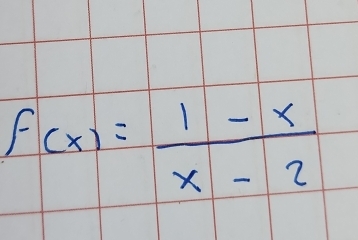 f(x) = (1 - x) / (x - 2)